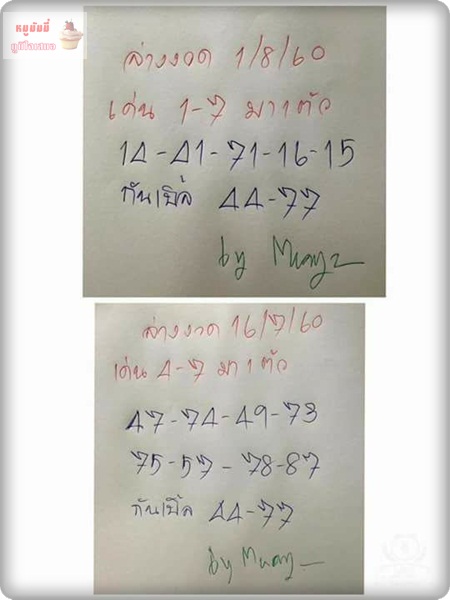 หมูมัมมี่
ล่างงวด 1/8/60
เด่น 1-7 มา 1 ตัว
14-41-71-16-15
กันเบิ้ล 44-77
by Muayz
ล่างงวด 16/7/60
เด่น 4-7 มา 1 ตัว
47-74-49-73
75-57-78-87
กันเบิ้ล 44-77
by Muayz